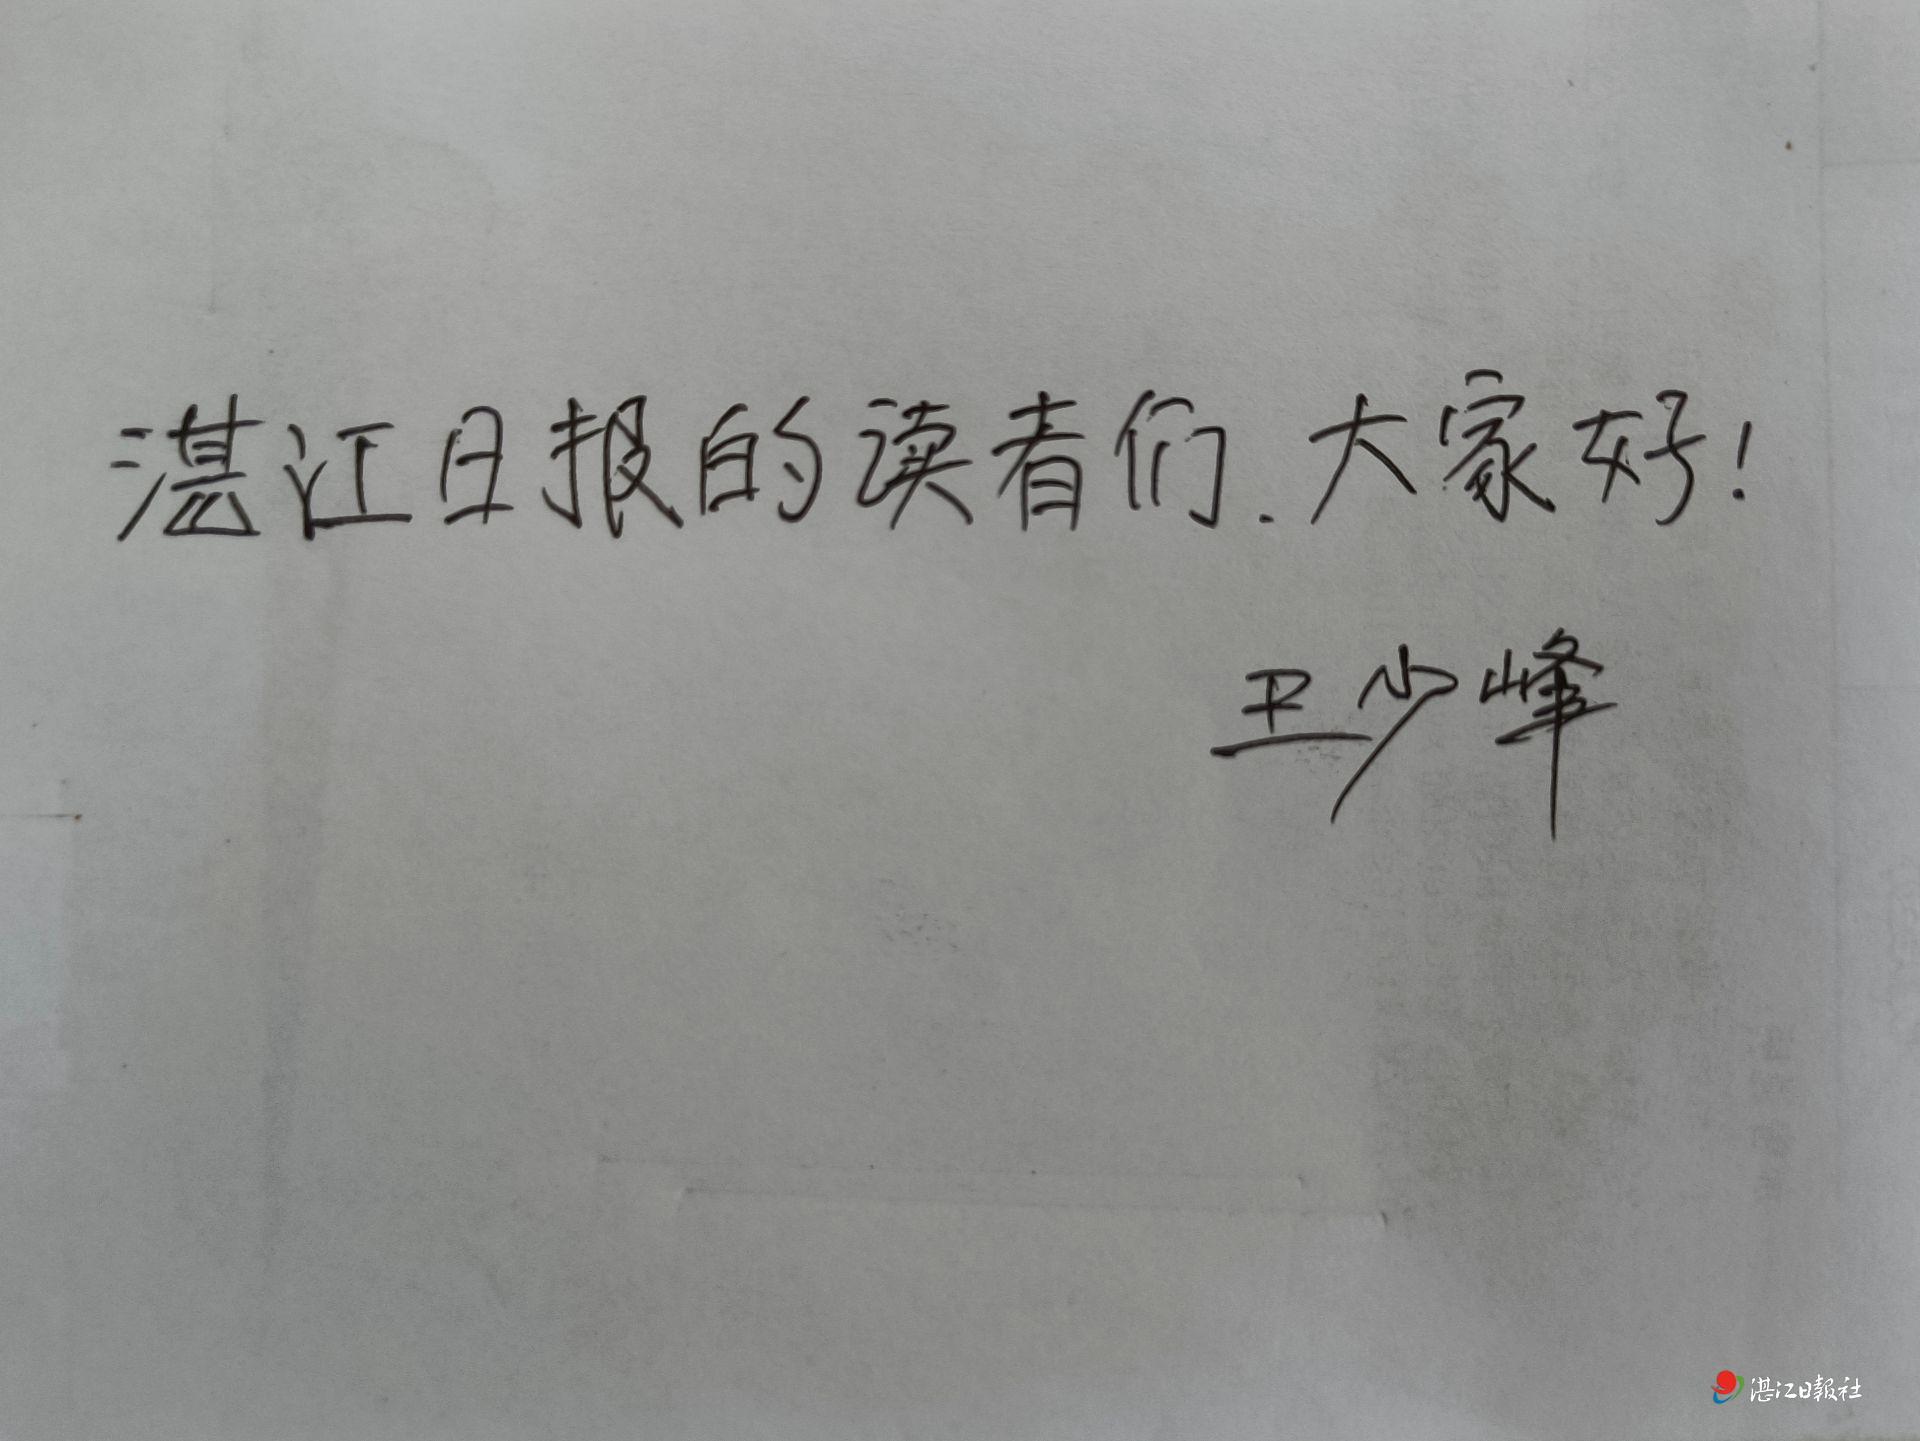 湛江日报的读者们.大家好!
王少峰
湛江日報社